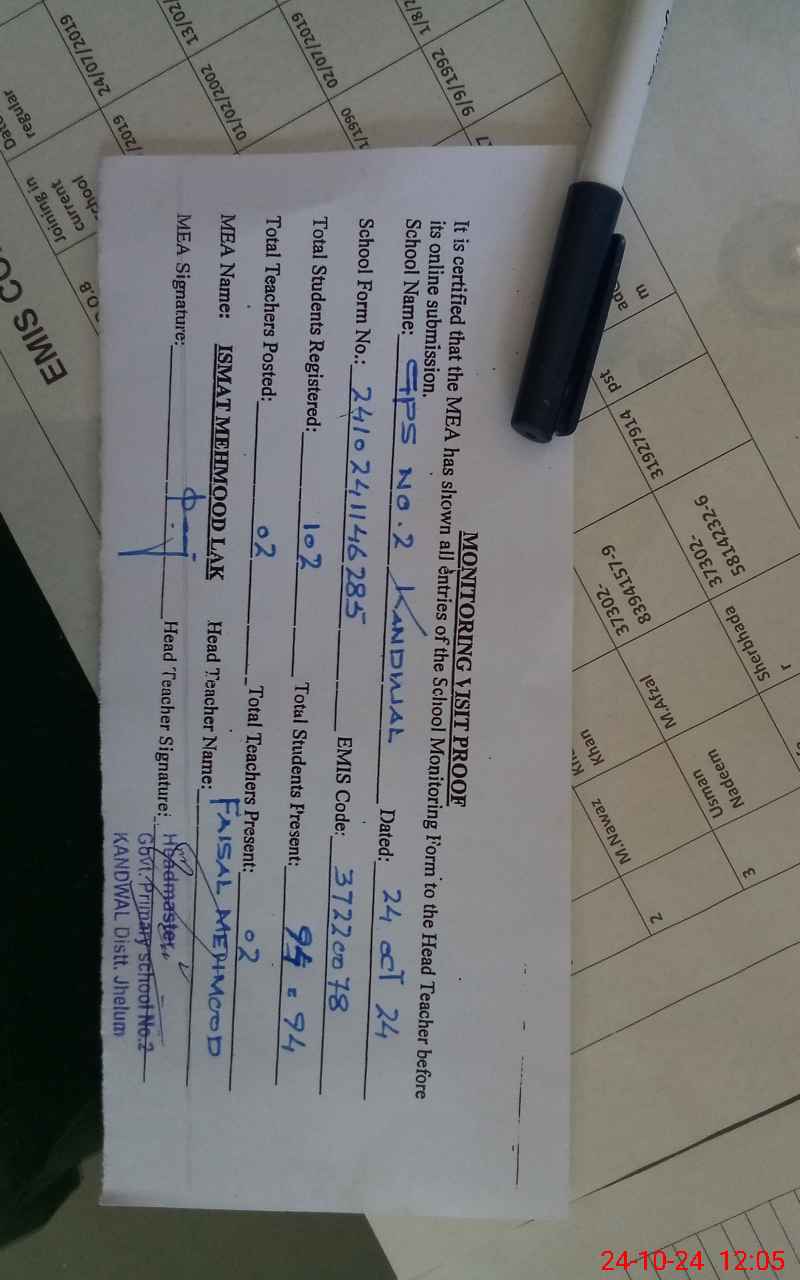 MONITORING VISIT PROOF
It is certified that the MEA has shown all entries of the School Monitoring Form to the Head Teacher before
its online submission.
School Name: GPS No. 2 KANDWAL Dated: 24 oct 24
School Form No.: 2410241146285 EMIS Code: 37220078
Total Students Registered: 102 Total Students Present: 94 = 94
Total Teachers Posted: 02 Total Teachers Present: 02
MEA Name: ISMAT MEHMOOD LAK Head Teacher Name: FAISAL MEHMOOD
MEA Signature: Head Teacher Signature:
Headmaster
Govt. Primary school No.2
KANDWAL Distt. Jhelum
EMIS CO
D.O.B
Joining in
current
school
regular
24/07/2019
13/02
/2019
01/02/2002
02/07/2019
1/1990
1/8/2
9/9/1992
m
pst
31927914
37302-
5814232-6
37302-
8394157-9
Sherbhada
r
M.Afzal
Khan
Usman
Nadeem
M.Nawaz
3
2
24-10-24 12:05